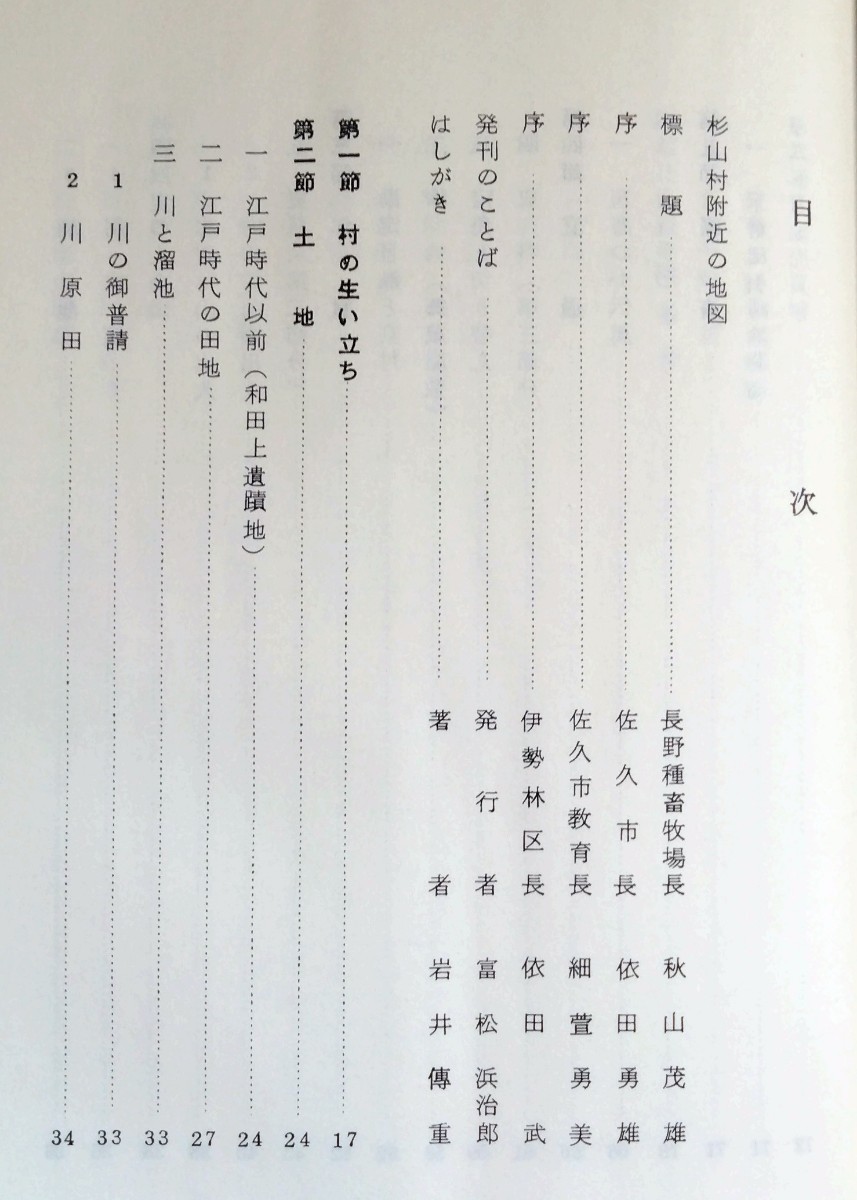 目次
杉山村附近の地図
標題……長野種畜牧場長 秋山茂雄
序……佐久市長 依田勇雄
序……佐久市教育長 細萱勇美
序……伊勢林区長 依田武
発刊のことば……発行者 富松浜治郎
はしがき……著者 岩井傳重
第一節 村の生い立ち……17
第二節 土地……24
一 江戸時代以前（和田上遺蹟地）……24
二 江戸時代の田地……27
三 川と溜池……33
1 川の御普請……33
2 川原田……34